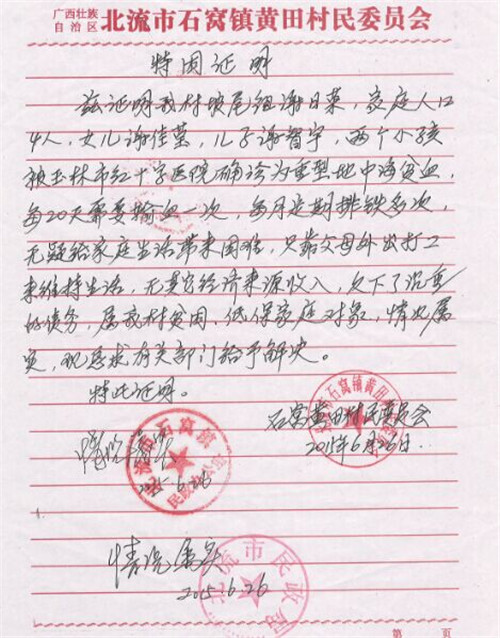 广西壮族
自治区
北流市石窝镇黄田村民委员会
特困证明
兹证明我村坡尾组谢日荣，家庭人口
4人，女儿谢佳莹，儿子谢智宇，两个小孩
被玉林市红十字医院确诊为重型地中海贫血，
每20天需要输血一次，每月定期排铁多次，
无疑给家庭生活带来困难，只靠父母外出打工
来维持生活，无其它经济来源收入，欠下了沉重
的债务，属我村贫困、低保家庭对象，情况属
实，现恳求有关部门给予解决。
特此证明。
石窝黄田村民委员会
2015年6月26日
情况属实
北流市石窝镇
民政办公室
2015.6.26
情况属实
2015.6.26
北流市民政局
第 页